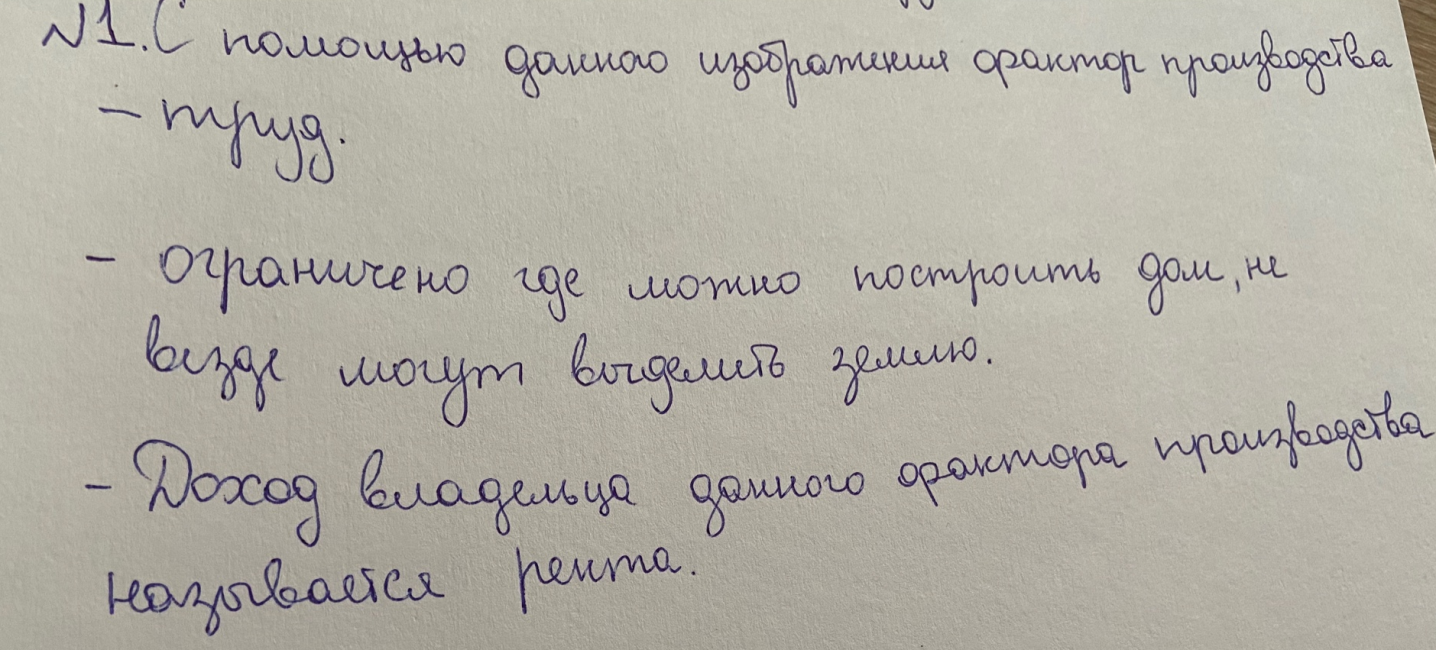 №1. С помощью данного изображения фактор производства
– труд.
– ограничено где можно построить дом, не
везде могут выделить землю.
– Доход владельца данного фактора производства
называется рента.